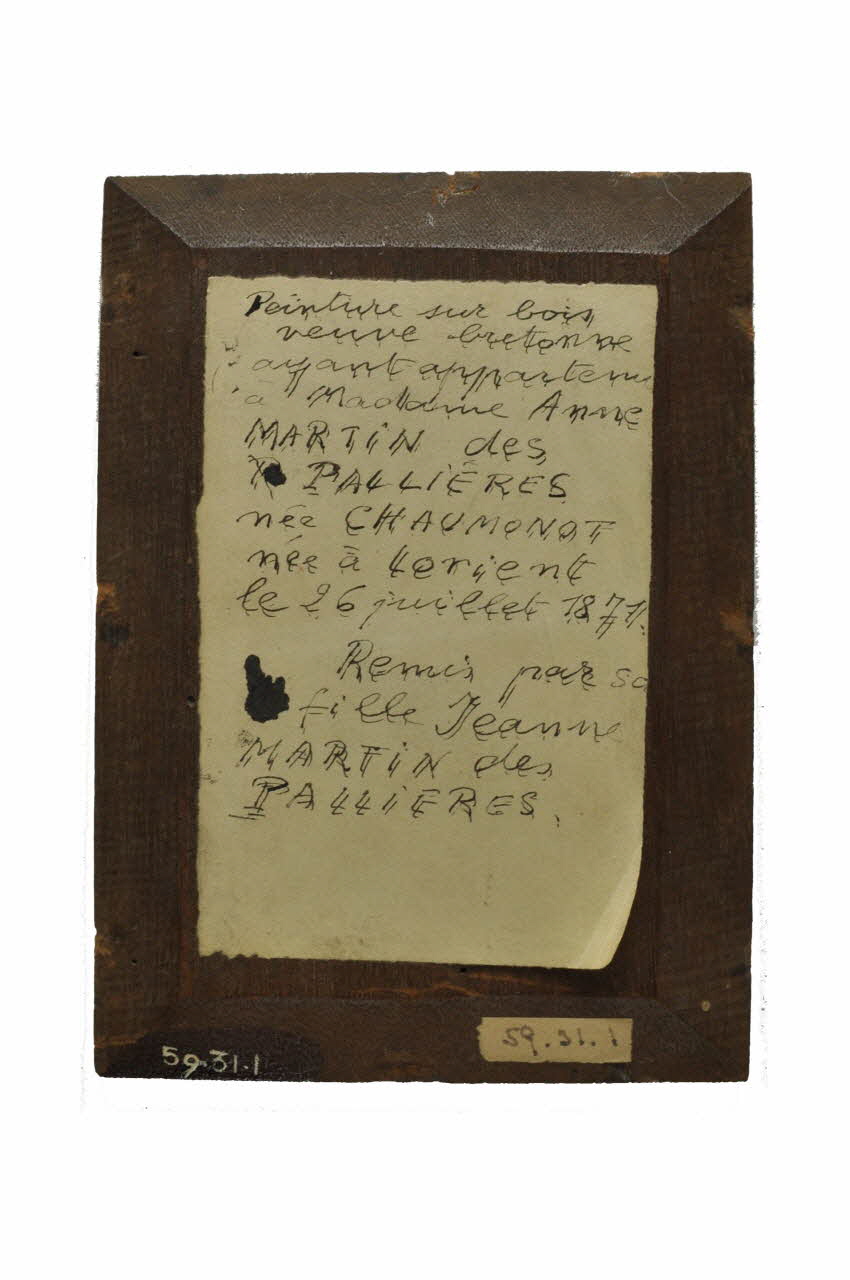 Peinture sur bois
veuve bretonne
ayant appartenu
à Madame Anne
MARTIN des
P PALLIÈRES
née CHAUMONOT
née à Lorient
le 26 juillet 1871.
Remis par sa
fille Jeanne
MARTIN des
PALLIÈRES.
59.31.1
59.31.1